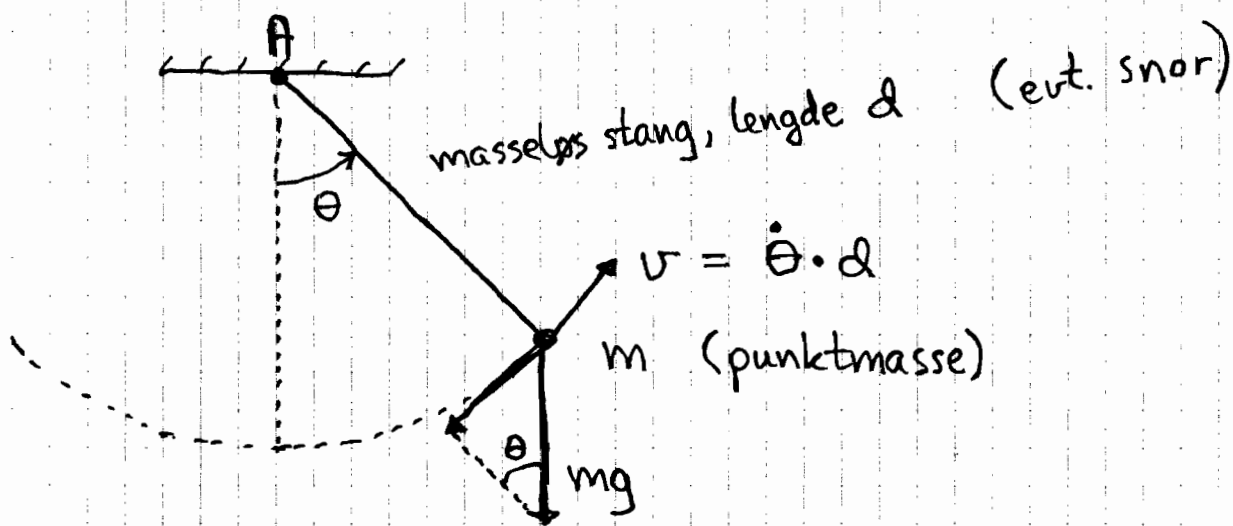 A
masseløs stang, lengde d (evt. snor)
θ
v = θ̇ · d
m (punktmasse)
θ
mg